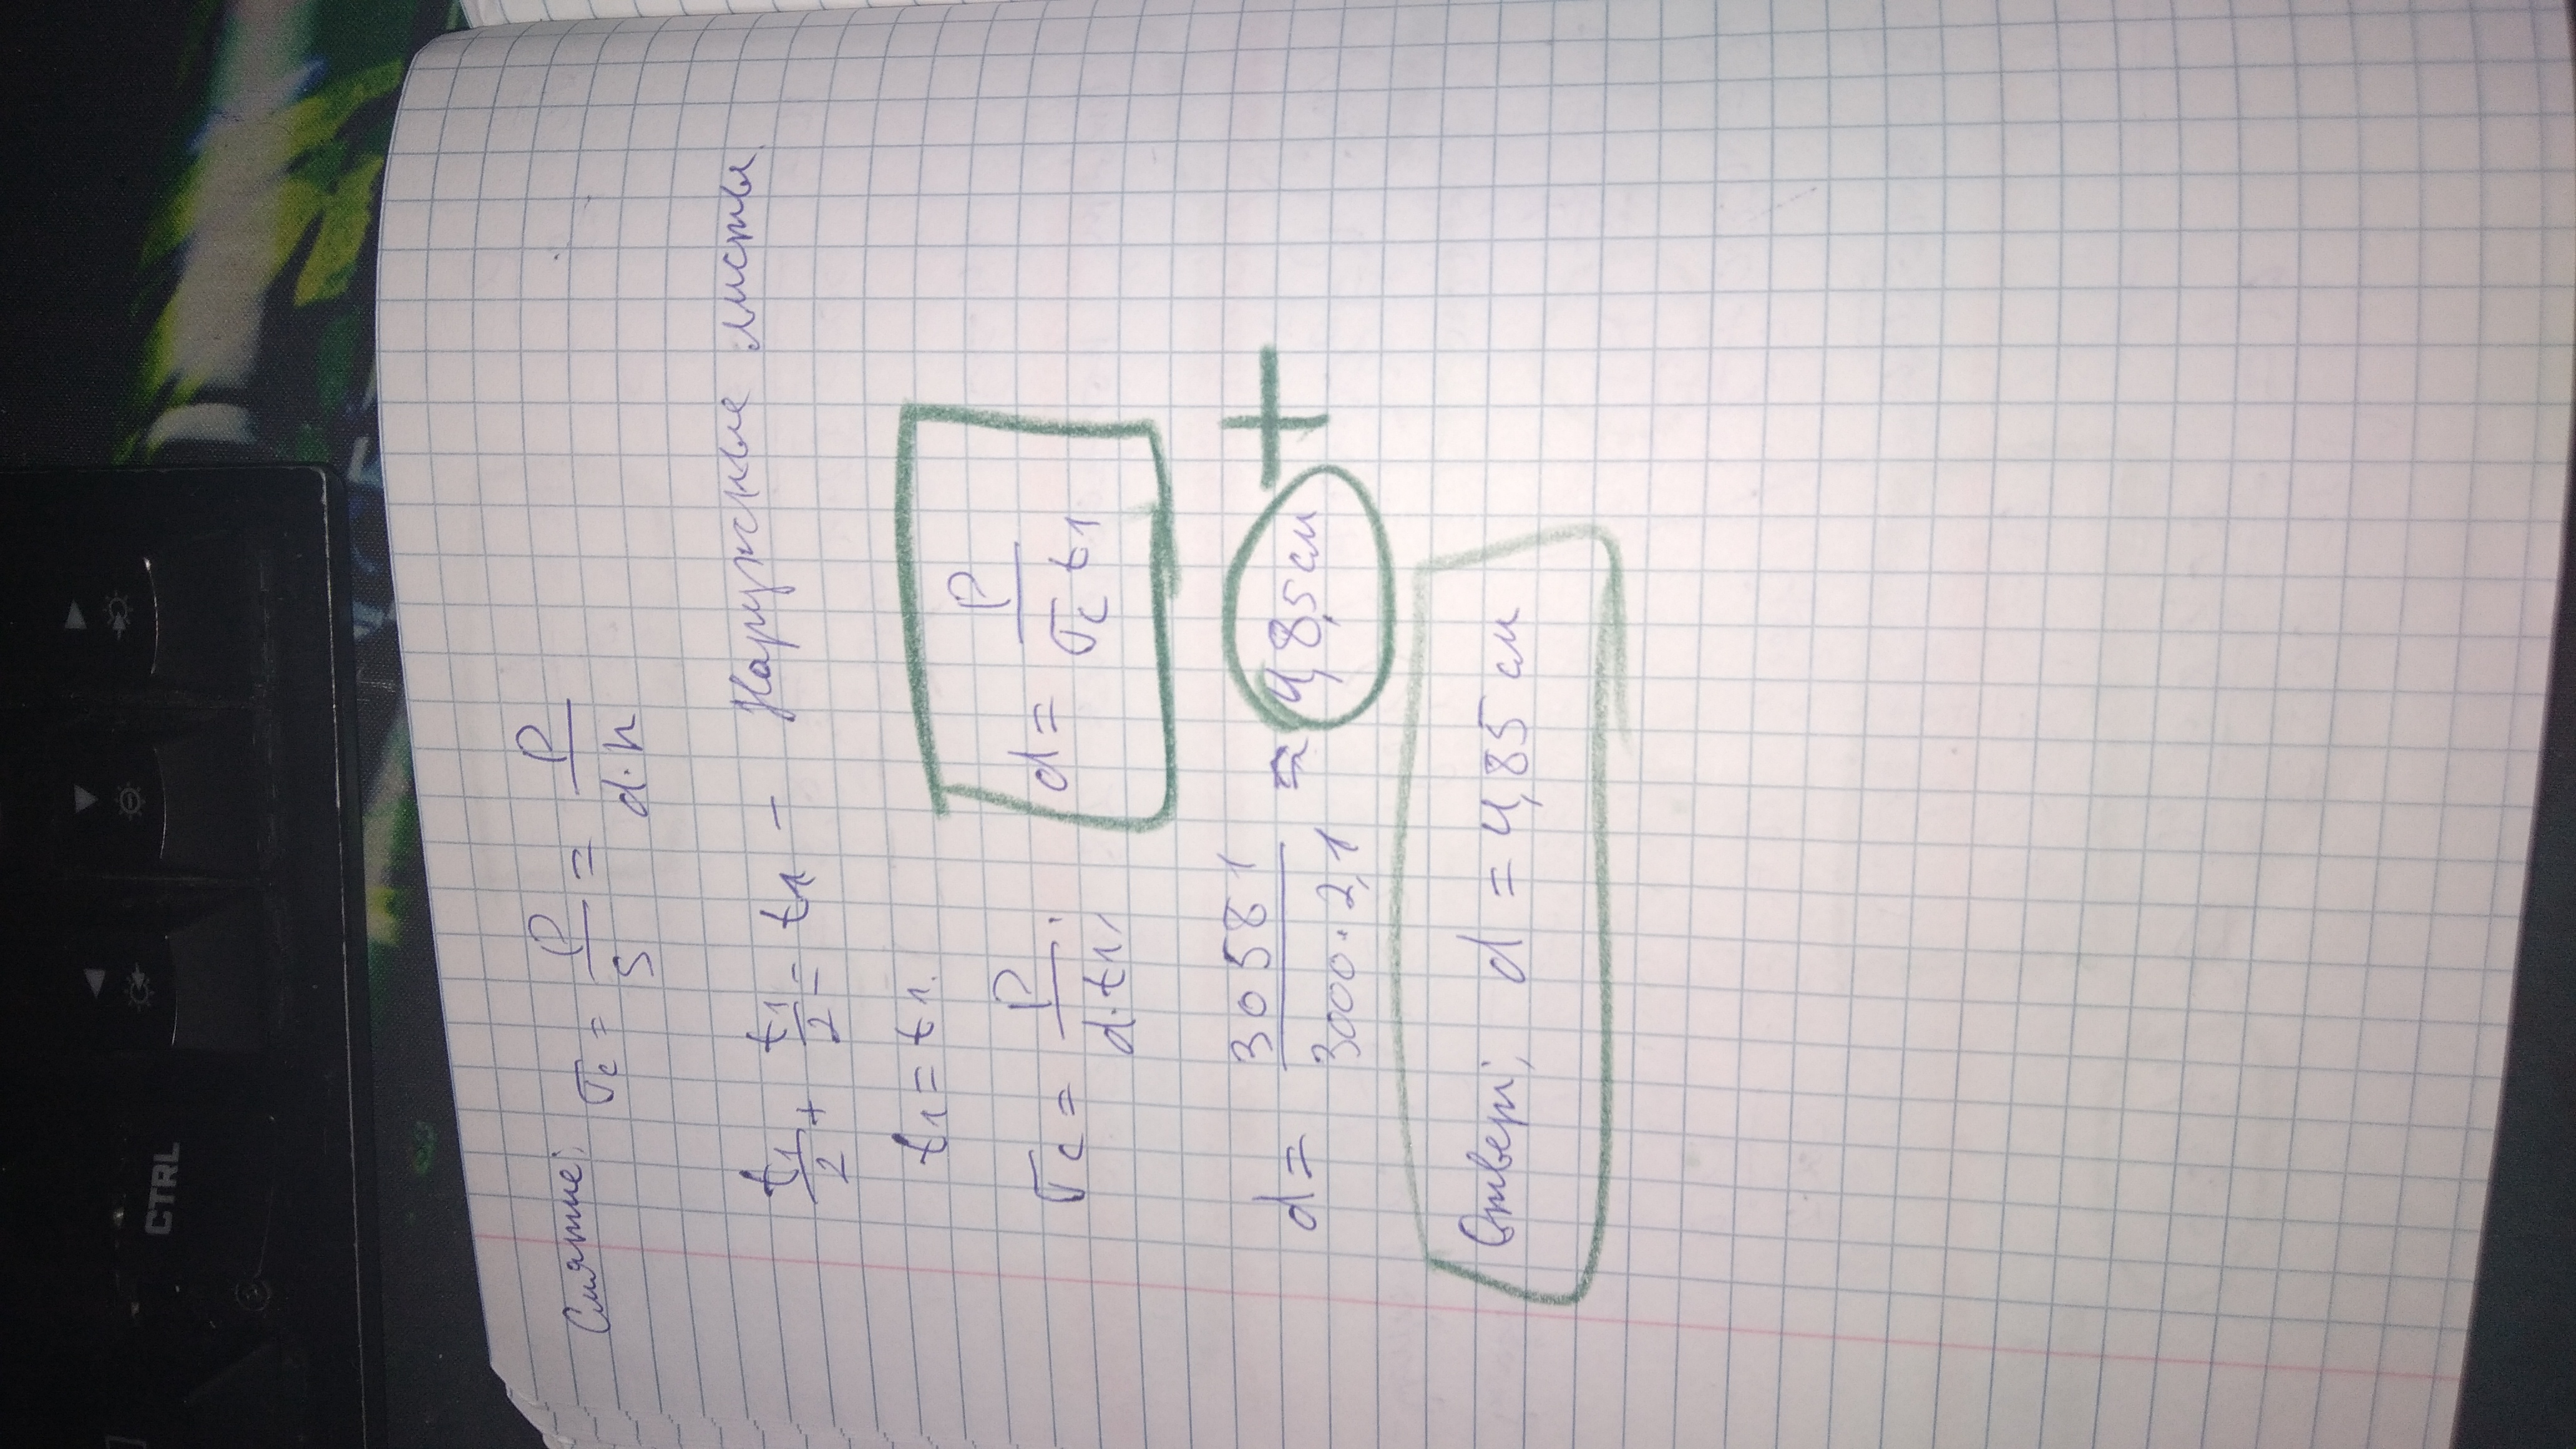 CTRL
Смятие: σc = P/S = P/d·h
t1/2 + t1/2 = t1 – Наружные листы.
t1 = t1.
σc = P/d·t1; d = P/σc t1
d = 30581/3000·2,1 ≈ 4,85 см +
Ответ; d = 4,85 см